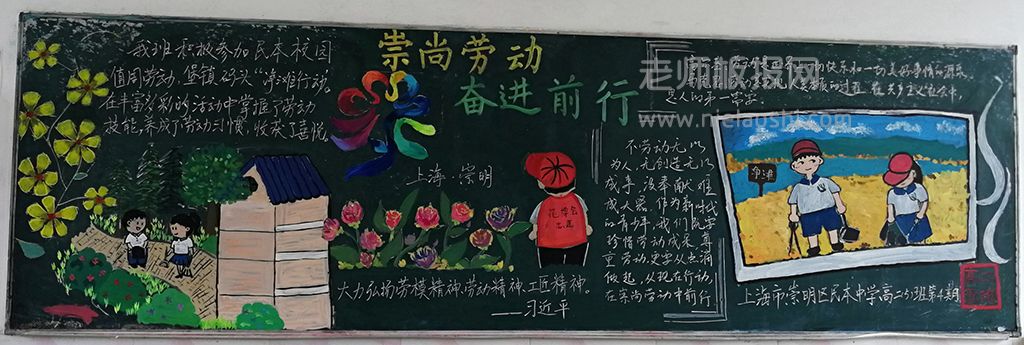 我班积极参加民本校园
值周劳动,堡镇码头“净滩行动”。
在丰富多彩的活动中掌握了劳动
技能,养成了劳动习惯,收获了喜悦
崇尚劳动
奋进前行
上海·崇明
花博会
志愿
大力弘扬劳模精神、劳动精神、工匠精神。
——习近平
老师板报网
不劳动无以
为人,无创造无以
成事,没奉献难
成人器。作为新时代
的青年,我们既要
珍惜劳动成果,尊
重劳动,更要从点滴
做起,从现在行动,
在崇尚劳动中前行
净滩
上海市崇明区民本中学高二(5)班第4期